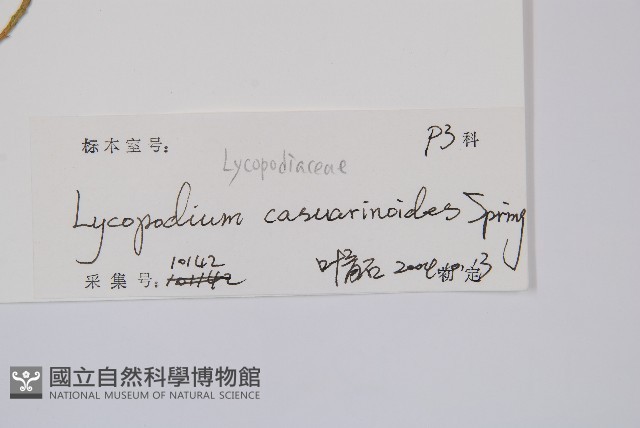 标本室号:
P3科
Lycopodiaceae
Lycopodium casuarinoides Spring
10142
采集号: 101142
叶育石 2004 定
國立自然科學博物館
NATIONAL MUSEUM OF NATURAL SCIENCE